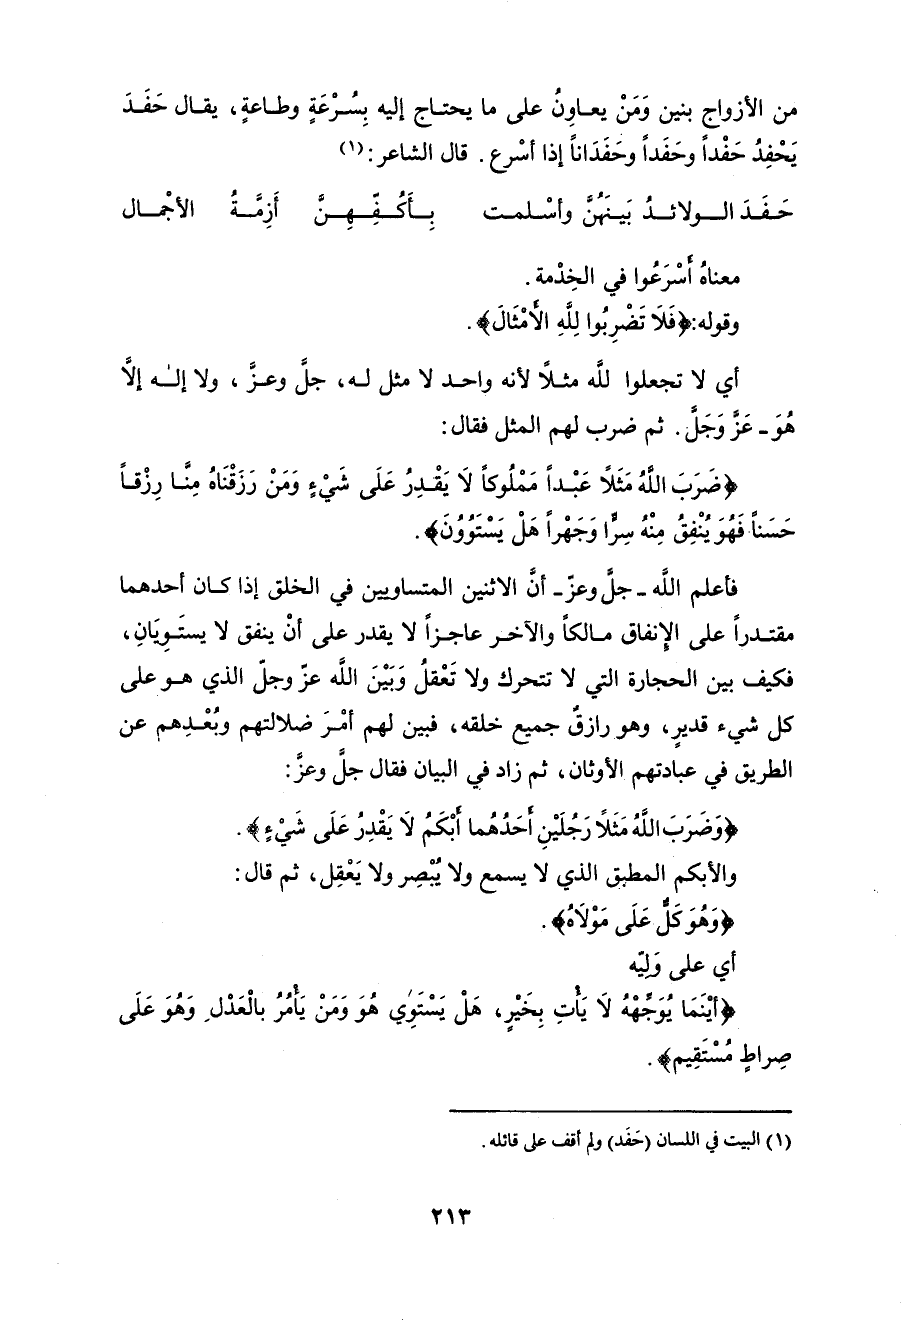 من الأزواج بنين وَمَنْ يعاونُ على ما يحتاج إليه بِسُرْعَةٍ وطاعةٍ، يقال حَفَدَ
يَحْفِدُ حَفْداً وحَفَداً وحَفَدَاناً إذا أسْرع. قال الشاعر:(١)
حَفَدَ الولائدُ بَينَهُنَّ وأسْلمت بِأَكُفِّهِنَّ أَزِمَّةُ الأجْمال
معناهُ أَسْرَعُوا في الخِدْمة.
وقوله:﴿فَلَا تَضْرِبُوا لِلَّهِ الأَمْثَالَ﴾.
أي لا تجعلوا للَّه مثلًا لأنه واحد لا مثل له، جلَّ وعزَّ، ولا إلٰه إلاَّ
هُوَ ـ عَزَّ وَجَلَّ. ثم ضرب لهم المثل فقال:
﴿ضَرَبَ اللَّهُ مَثَلًا عَبْداً مَمْلُوكاً لَا يَقْدِرُ عَلَى شَيْءٍ وَمَنْ رَزَقْنَاهُ مِنَّا رِزْقاً
حَسَناً فَهُوَ يُنْفِقُ مِنْهُ سِرًّا وَجَهْراً هَلْ يَسْتَوُونَ﴾.
فأعلم اللَّه ـ جلَّ وعزّ ـ أنَّ الاثنين المتساويين في الخلق إذا كان أحدهما
مقتدراً على الإنفاق مالكاً والآخر عاجزاً لا يقدر على أنْ ينفق لا يستَوِيَانِ،
فكيف بين الحجارة التي لا تتحرك ولا تَعْقلُ وَبَيْنَ اللَّه عزّ وجلّ الذي هو على
كل شيء قديرٍ، وهو رازقُ جميع خلقه، فبين لهم أمْرَ ضلالتهم وبُعْدِهم عن
الطريق في عبادتهم الأوثان، ثم زاد في البيان فقال جلَّ وعزَّ:
﴿وَضَرَبَ اللَّهُ مَثَلًا رَجُلَيْنِ أَحَدُهُما أَبْكَمُ لَا يَقْدِرُ عَلَى شَيْءٍ﴾.
والأبكم المطبق الذي لا يسمع ولا يُبْصِر ولا يَعْقِل، ثم قال:
﴿وَهُوَ كَلٌّ عَلَى مَوْلَاهُ﴾.
أي على وَلِيّه
﴿أيْنَمَا يُوَجِّهْهُ لَا يَأْتِ بِخَيْرٍ، هَلْ يَسْتَوِي هُوَ وَمَنْ يَأْمُرُ بالْعَدْلِ وَهُوَ عَلَى
صِراطٍ مُسْتَقِيم﴾.
(١) البيت في اللسان (حَفَد) ولم أقف على قائله.
٢١٣